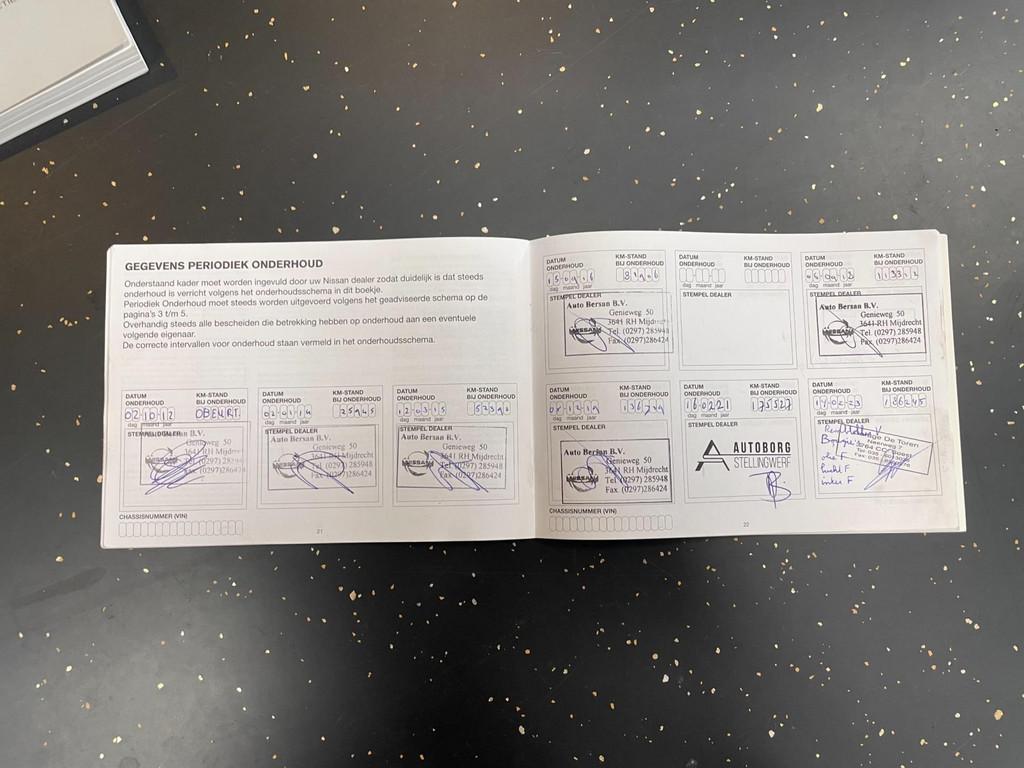 GEGEVENS PERIODIEK ONDERHOUD
Onderstaand kader moet worden ingevuld door uw Nissan dealer zodat duidelijk is dat steeds
onderhoud is verricht volgens het onderhoudsschema in dit boekje.
Periodiek Onderhoud moet steeds worden uitgevoerd volgens het geadviseerde schema op de
pagina's 3 t/m 5.
Overhandig steeds alle bescheiden die betrekking hebben op onderhoud aan een eventuele
volgende eigenaar.
De correcte intervallen voor onderhoud staan vermeld in het onderhoudsschema.
DATUM ONDERHOUD
KM-STAND BIJ ONDERHOUD
021012
dag maand jaar
STEMPEL DEALER
Genieweg 50
3641 RH Mijdrecht
DATUM ONDERHOUD
KM-STAND BIJ ONDERHOUD
020114
25945
dag maand jaar
STEMPEL DEALER
Auto Bersan B.V.
Genieweg 50
3641 RH Mijdrecht
Tel. (0297) 285948
Fax. (0297)286424
NISSAN
DATUM ONDERHOUD
KM-STAND BIJ ONDERHOUD
120315
dag maand jaar
STEMPEL DEALER
Auto Bersan B.V.
Genieweg 50
3641 RH Mijdrecht
Tel. (0297) 285948
Fax. (0297)286424
NISSAN
CHASSISNUMMER (VIN)
21
DATUM ONDERHOUD
KM-STAND BIJ ONDERHOUD
dag maand jaar
STEMPEL DEALER
Auto Bersan B.V.
Genieweg 50
3641 RH Mijdrecht
Tel. (0297) 285948
Fax. (0297)286424
NISSAN
DATUM ONDERHOUD
KM-STAND BIJ ONDERHOUD
dag maand jaar
STEMPEL DEALER
DATUM ONDERHOUD
KM-STAND BIJ ONDERHOUD
dag maand jaar
STEMPEL DEALER
Auto Bersan B.V.
Genieweg 50
3641 RH Mijdrecht
Tel. (0297) 285948
Fax. (0297)286424
NISSAN
DATUM ONDERHOUD
KM-STAND BIJ ONDERHOUD
dag maand jaar
STEMPEL DEALER
Auto Bersan B.V.
Genieweg 50
3641 RH Mijdrecht
Tel. (0297) 285948
Fax. (0297)286424
NISSAN
DATUM ONDERHOUD
KM-STAND BIJ ONDERHOUD
160221
175327
dag maand jaar
STEMPEL DEALER
AUTOBORG
STELLINGWERF
DATUM ONDERHOUD
KM-STAND BIJ ONDERHOUD
186245
dag maand jaar
STEMPEL DEALER
De Toren
Bougie's
olie F
lucht F
CHASSISNUMMER (VIN)
22